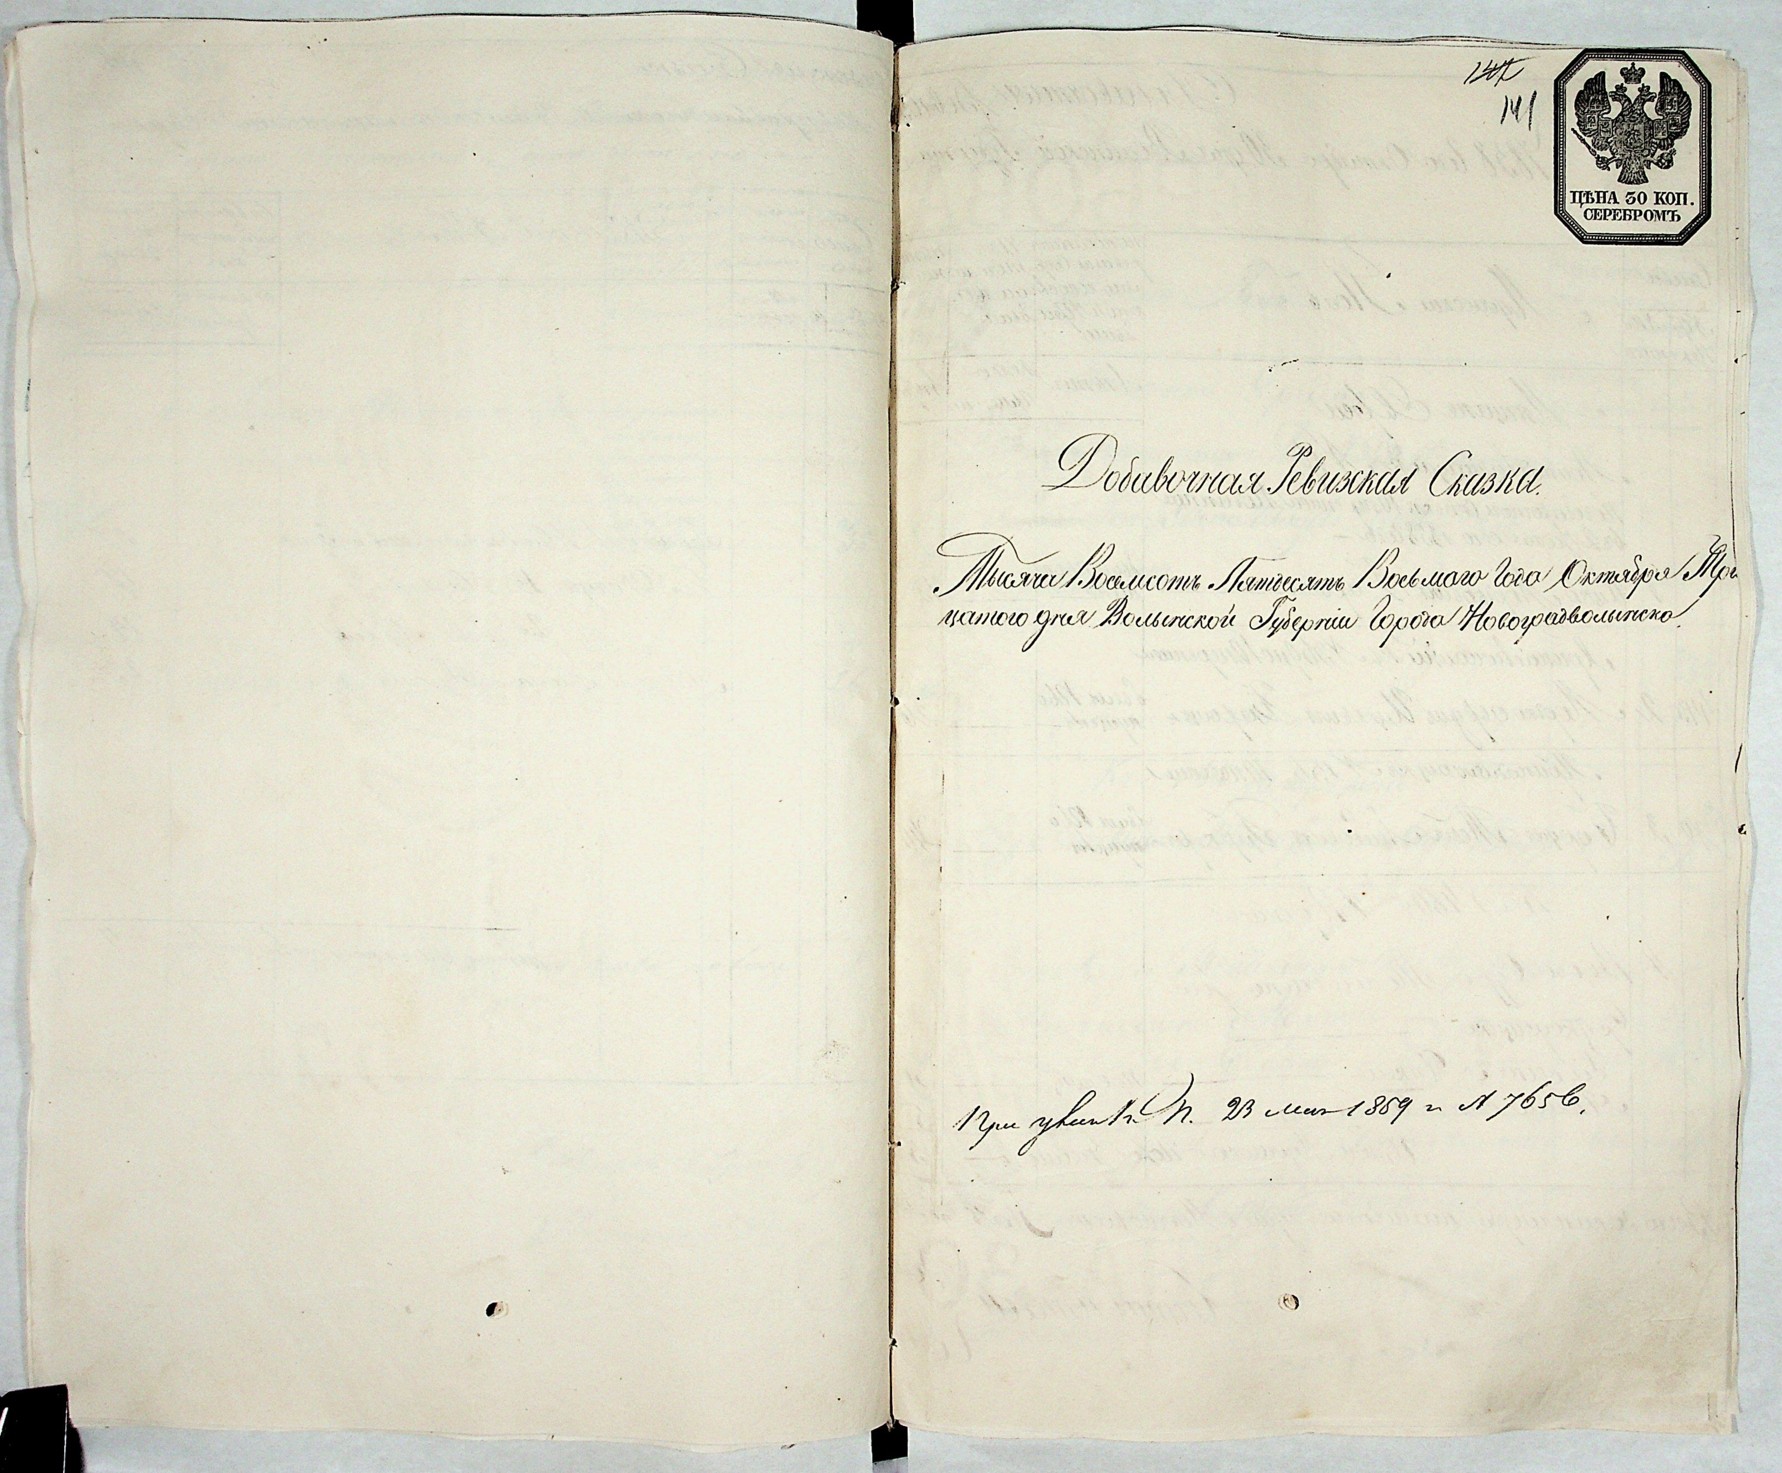 141
ЦѢНА 30 КОП.
СЕРЕБРОМЪ
Добавочная Ревизская Сказка.
Тысяча Восемсотъ Пятдесятъ Восьмого Года Октября Три
цатого дня Волынской Губерніи Города Новоградволынска.
При 1859 г. № 7656.